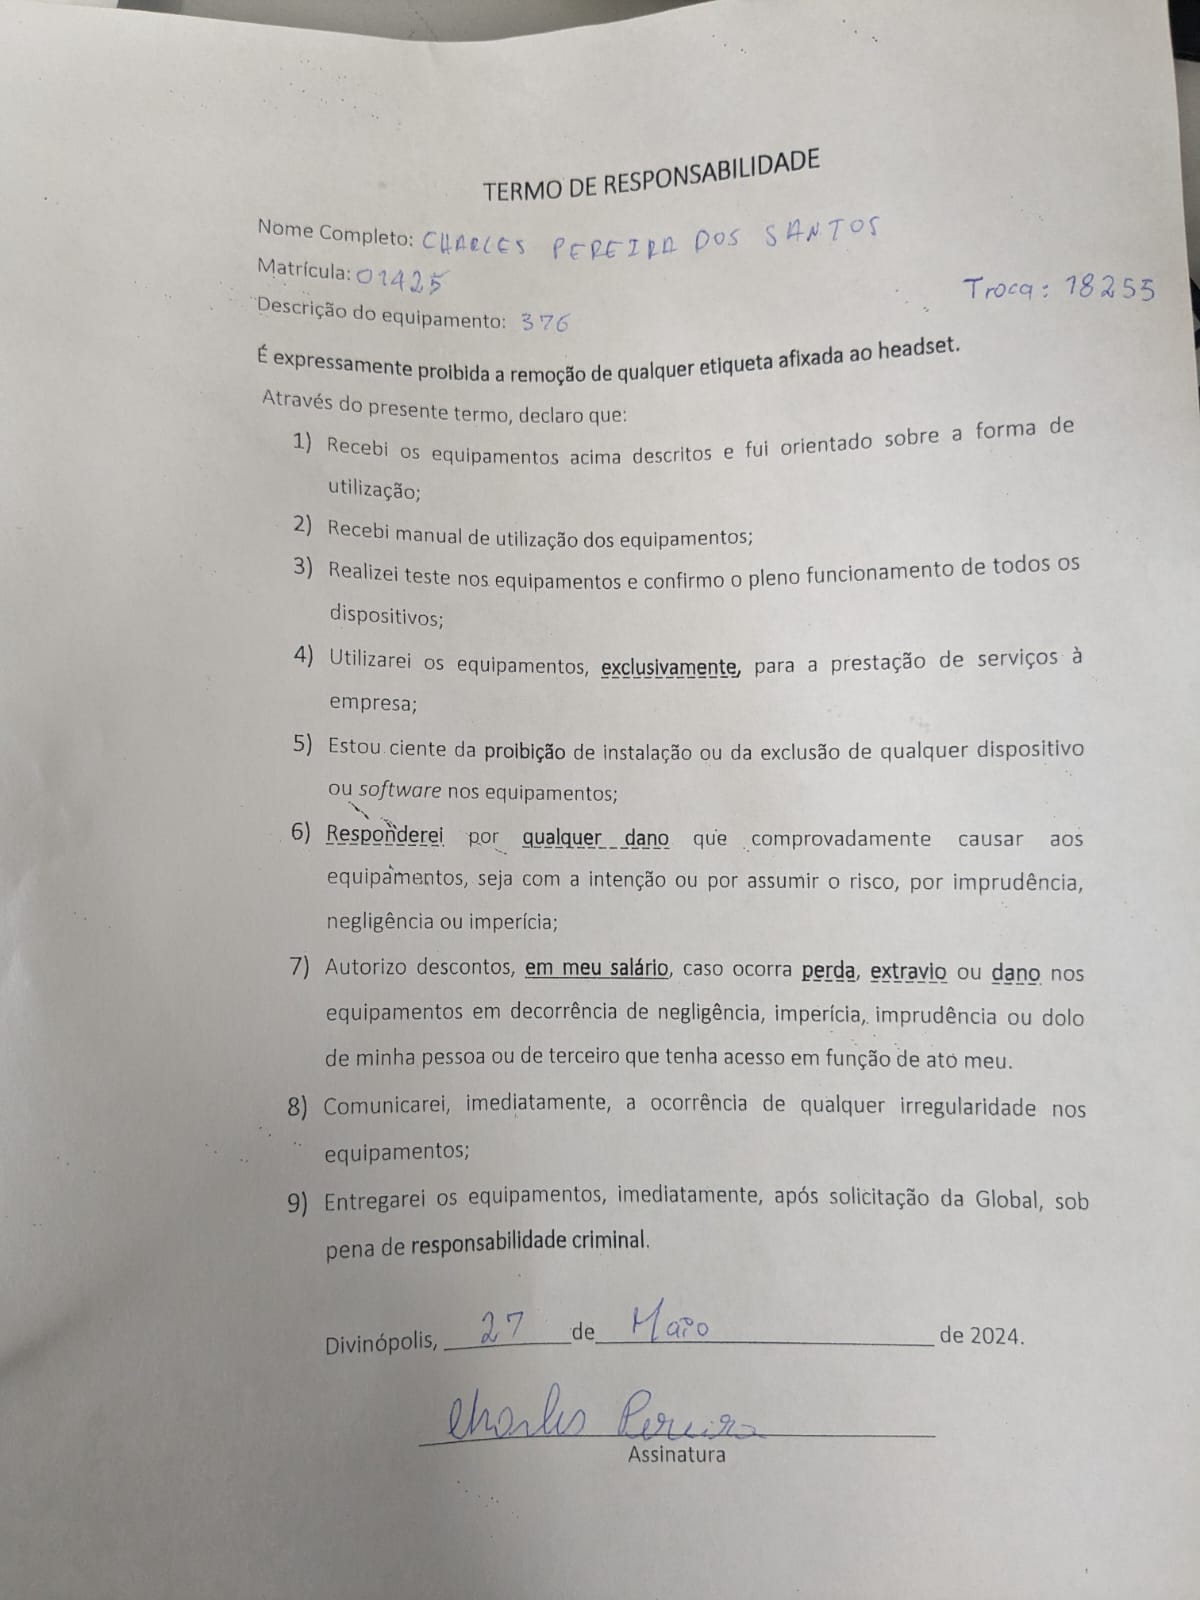 TERMO DE RESPONSABILIDADE
Nome Completo: CHARLES PEREIRA DOS SANTOS
Matrícula: 01425
Troca: 18255
Descrição do equipamento: 376
É expressamente proibida a remoção de qualquer etiqueta afixada ao headset.
Através do presente termo, declaro que:
1) Recebi os equipamentos acima descritos e fui orientado sobre a forma de
utilização;
2) Recebi manual de utilização dos equipamentos;
3) Realizei teste nos equipamentos e confirmo o pleno funcionamento de todos os
dispositivos;
4) Utilizarei os equipamentos, exclusivamente, para a prestação de serviços à
empresa;
5) Estou ciente da proibição de instalação ou da exclusão de qualquer dispositivo
ou software nos equipamentos;
6) Responderei por qualquer dano que comprovadamente causar aos
equipamentos, seja com a intenção ou por assumir o risco, por imprudência,
negligência ou imperícia;
7) Autorizo descontos, em meu salário, caso ocorra perda, extravio ou dano nos
equipamentos em decorrência de negligência, imperícia, imprudência ou dolo
de minha pessoa ou de terceiro que tenha acesso em função de ato meu.
8) Comunicarei, imediatamente, a ocorrência de qualquer irregularidade nos
equipamentos;
9) Entregarei os equipamentos, imediatamente, após solicitação da Global, sob
pena de responsabilidade criminal.
Divinópolis, 27 de Maio de 2024.
Charles Pereira
Assinatura